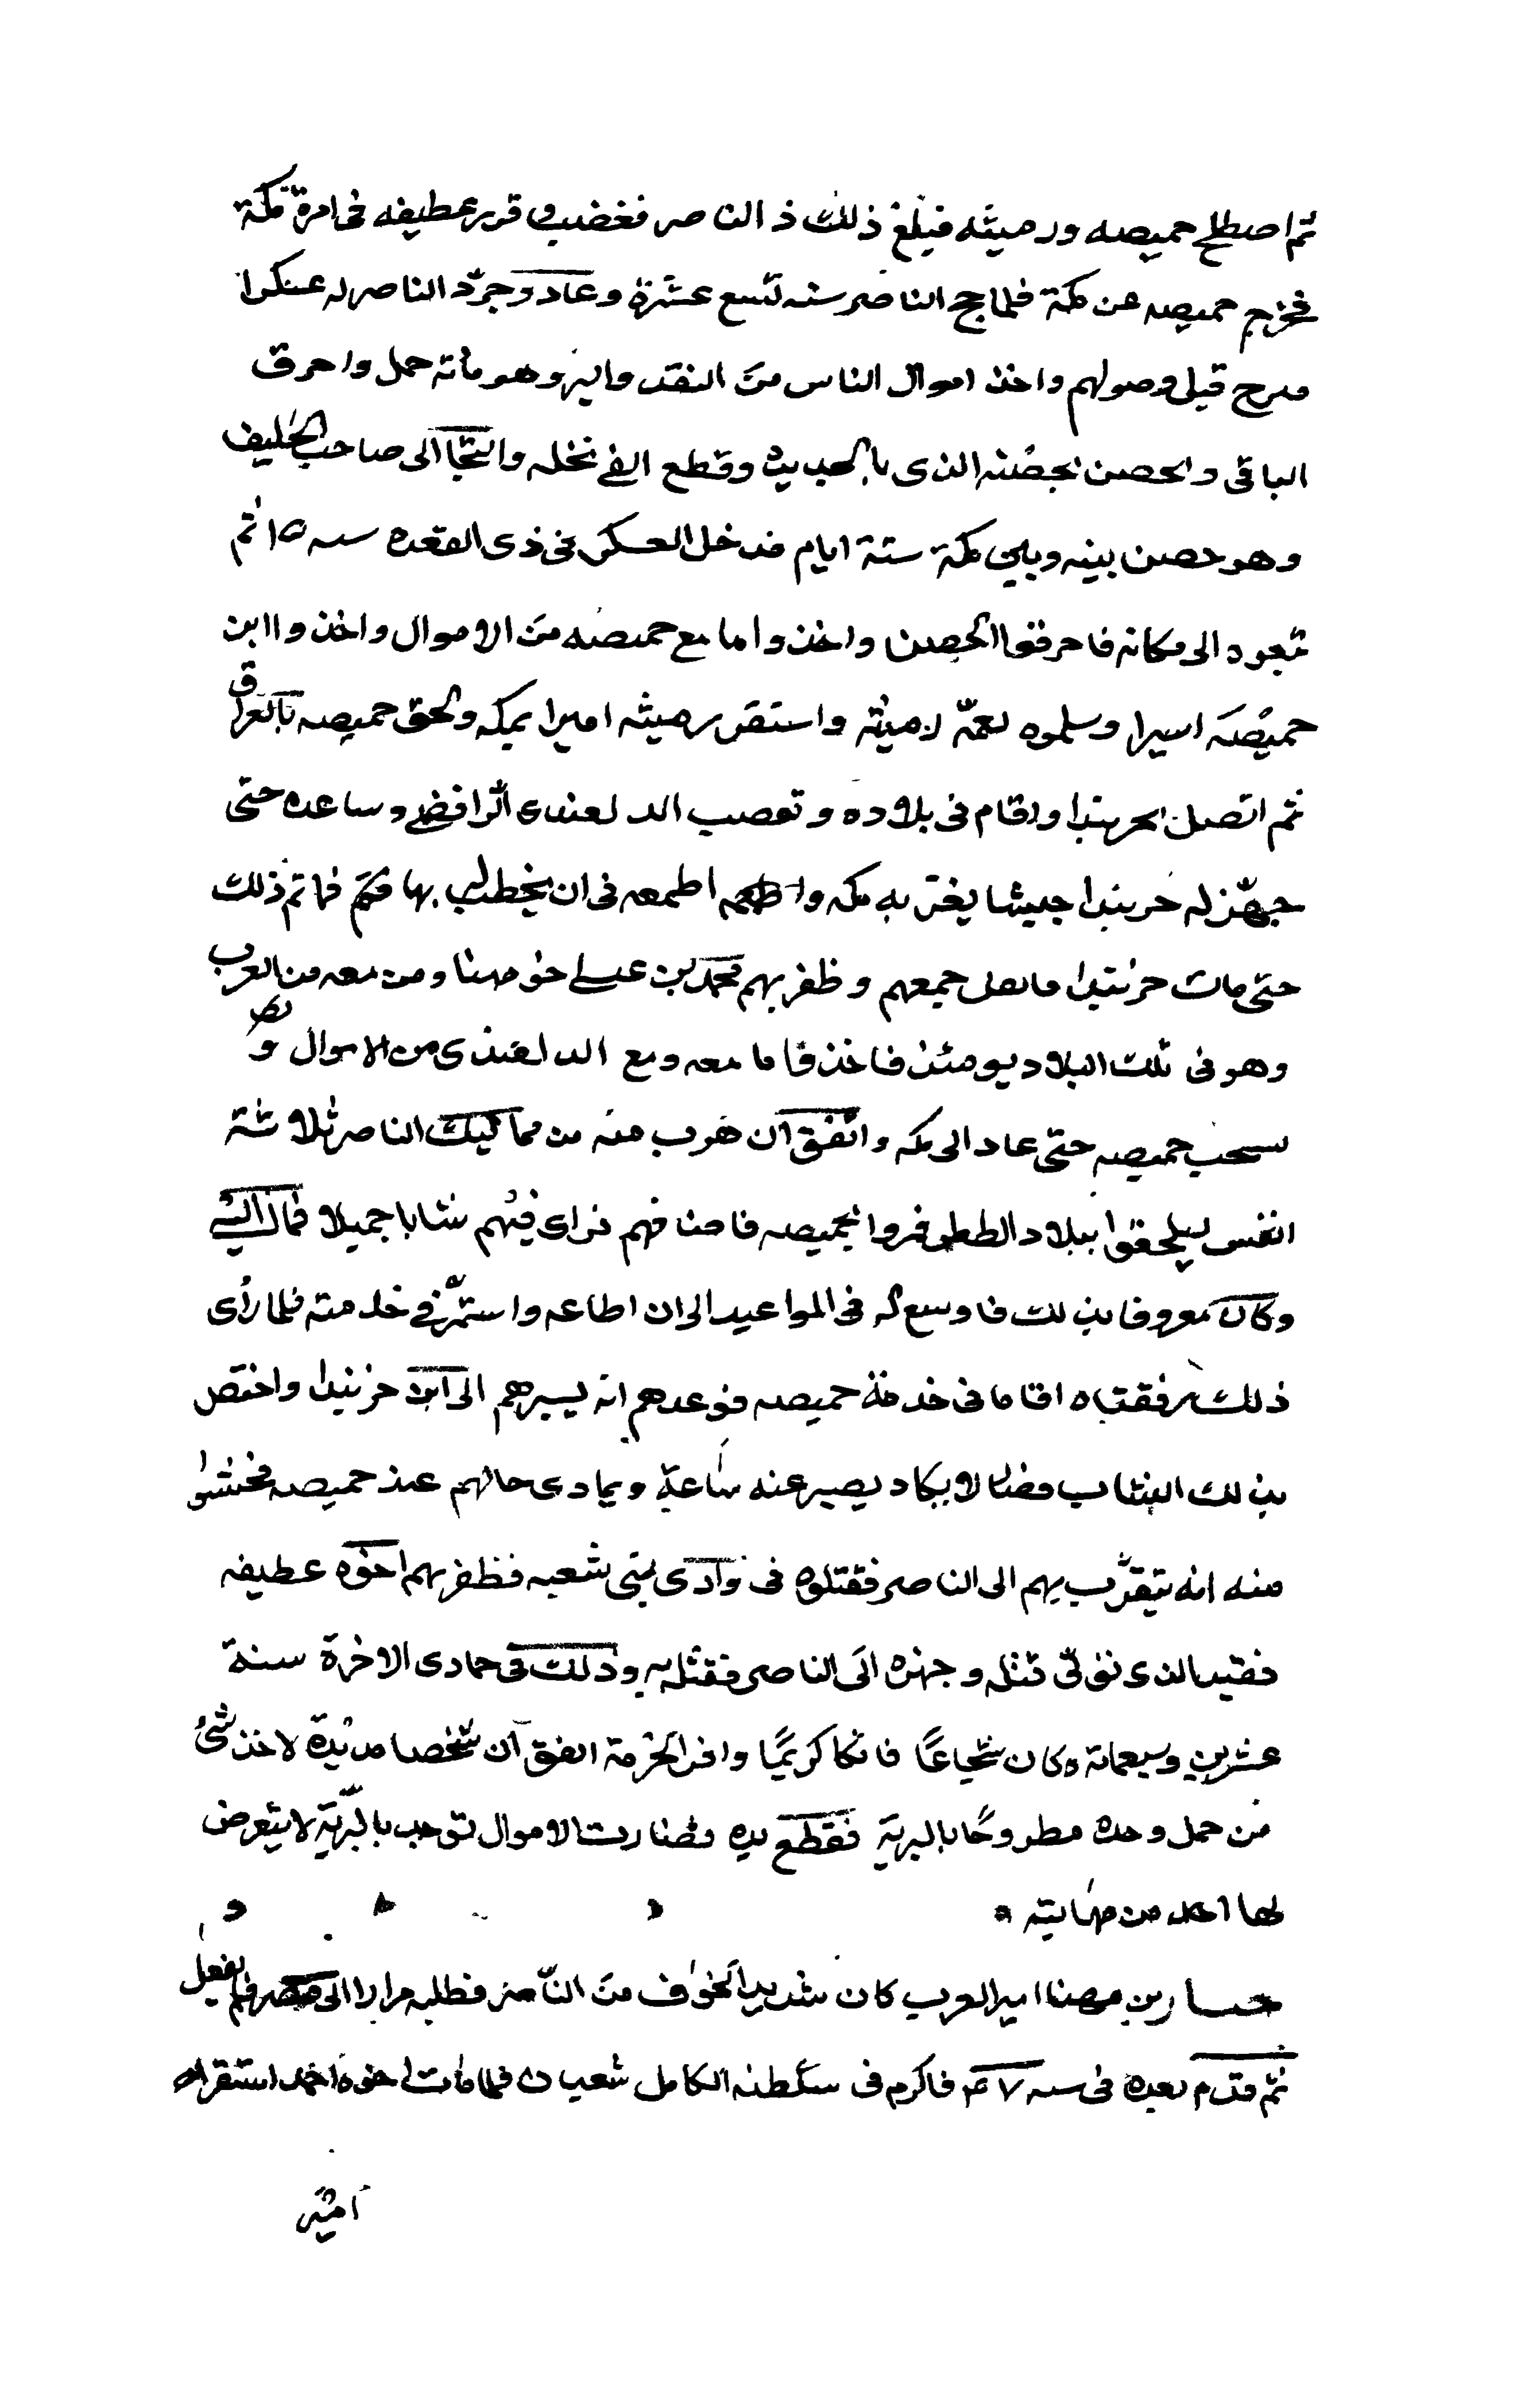 ثم اصطلح حميصه ورميثه فبلغ ذلك ذ الناصر فغضب و قرر عطيفه فى امرة مكة
فخرج حميصه عن مكة فلما حج الناصر سنه تسع عشرة وعاد وجرد الناصر له عسكرا
فبرح قبل وصولهم واخذ اموال الناس من النقد والبز وهو مائة حمل واحرق
الباقى والحصن بحصنه الذى بالحديده وقطع الفى نخله والتجا الى صاحب الخليف
وهو حصن بينه وبين مكة ستة ايام فدخل العسكر فى ذى القعده سنه ١٥ ثم
تبعوه الى مكانه فاحرقوا الحصن واخذوا ما مع حميصه من الاموال واخذوا ابن
حميصه اسيرا وسلموه لعمه رميثه واستقر رميثه اميرا بمكه ولحق حميصه بالعراق
ثم اتصل بخربندا واقام فى بلاده وتعصب الدلعندى الرافضى وساعده حتى
جهز له خربندا جيشا يغزو به مكه واطمعه فى ان يخطب له بها فما تم ذلك
حتى مات خربندا جمعهم وظفر بهم محمد بن عيسى اخو مهنا ومن معه من العرب
وهو فى تلك البلاد يومئذ فاخذ ما معه ومع الدلعندى من الاموال و
سحب حميصه حتى عاد الى مكه واتفق ان هرب منه من مماليك الناصر ثلاثة
انفس ليلحقوا ببلاد الططر فمروا بحميصه فاضافهم فراى فيهم شابا جميلا فمال اليه
وكان معروفا بذلك فاوسع له فى المواعيد الى ان اطاعه واستمر فى خدمته فلما رأى
ذلك رفقتاه اقاما فى خدمة حميصه فوعدهم انه يسيرهم الى ابن خربندا واختص
بذلك الشاب فصار لا يكاد يصبر عنه ساعة وتمادى حالهم عند حميصه فخشوا
منه انه يتقرب بهم الى الناصر فقتلوه فى وادى بنى شعبه فظفر بهم اخوه عطيفه
فقيد الذى تولى قتله وجهزه الى الناصر فقتله به وذلك فى جمادى الاخرة سنة
عشرين وسبعمائة وكان شجاعا فاتكا كريما وافر الحرمة اتفق ان شخصا مد يده لاخذ شئ
من حمل وحده مطروحا بالبرية فقطع يده فصارت الاموال توجد بالبرية لا يتعرض
لها احد من مهابته
حيار بن مهنا امير العرب كان شديد الخوف من الناصر فطلبه مرارا الى مصر فلم يفعل
ثم قدم بعده فى سنه ٧٤ فاكرم فى سلطنه الكامل شعبان فلما مات اخوه احمد استقر